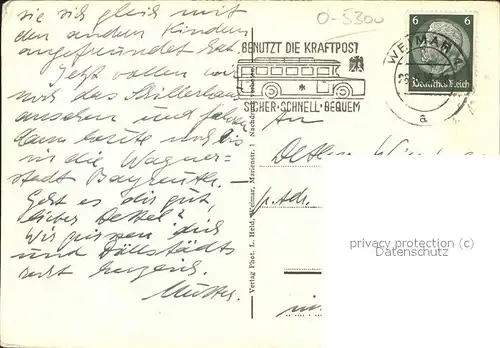 sie sich gleich mit
den andern Kindern
angefreundet hat.
Jetzt wollen wir
noch das Schillerhaus
ansehen und fahren
dann heute noch bis
in die Wagner-
stadt Bayreuth.
Geht es dir gut,
lieber Detlef?
Wir grüssen dich
und Döllstädts
recht herzlich.
Mutter.
0-5300
BENUTZT DIE KRAFTPOST
SICHER·SCHNELL·BEQUEM
6 6
Deutsches Reich
WEIMAR
a
An
p. Adr.
in
Verlag Phot. L. Held, Weimar, Marienstr. 1 Nachdr
privacy protection (c)
Datenschutz